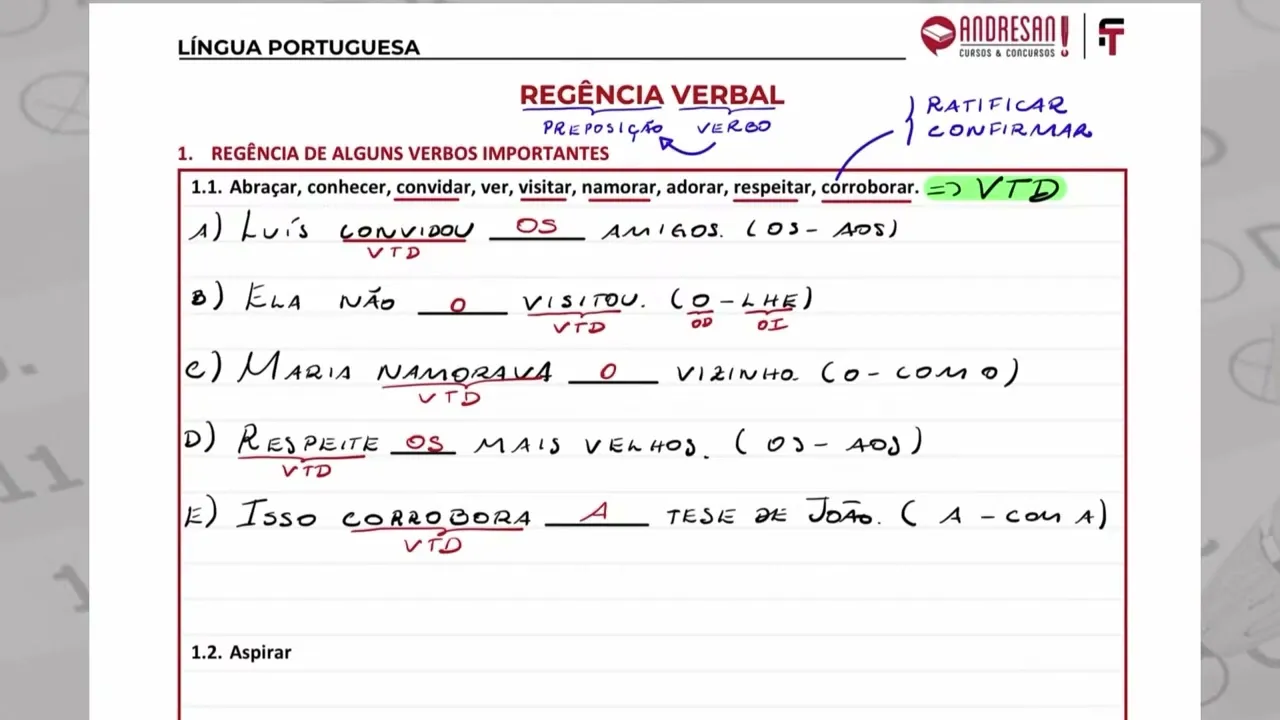 LÍNGUA PORTUGUESA
ANDRESAN!
CURSOS & CONCURSOS
REGÊNCIA VERBAL
PREPOSIÇÃO VERBO
RATIFICAR
CONFIRMAR
1. REGÊNCIA DE ALGUNS VERBOS IMPORTANTES
1.1. Abraçar, conhecer, convidar, ver, visitar, namorar, adorar, respeitar, corroborar. => VTD
A) LUÍS CONVIDOU OS AMIGOS. (OS - AOS)
VTD
B) ELA NÃO O VISITOU. (O - LHE)
VTD OD OI
C) MARIA NAMORAVA O VIZINHO. (O - COM O)
VTD
D) RESPEITE OS MAIS VELHOS. (OS - AOS)
VTD
E) ISSO CORROBORA A TESE DE JOÃO. (A - COM A)
VTD
1.2. Aspirar